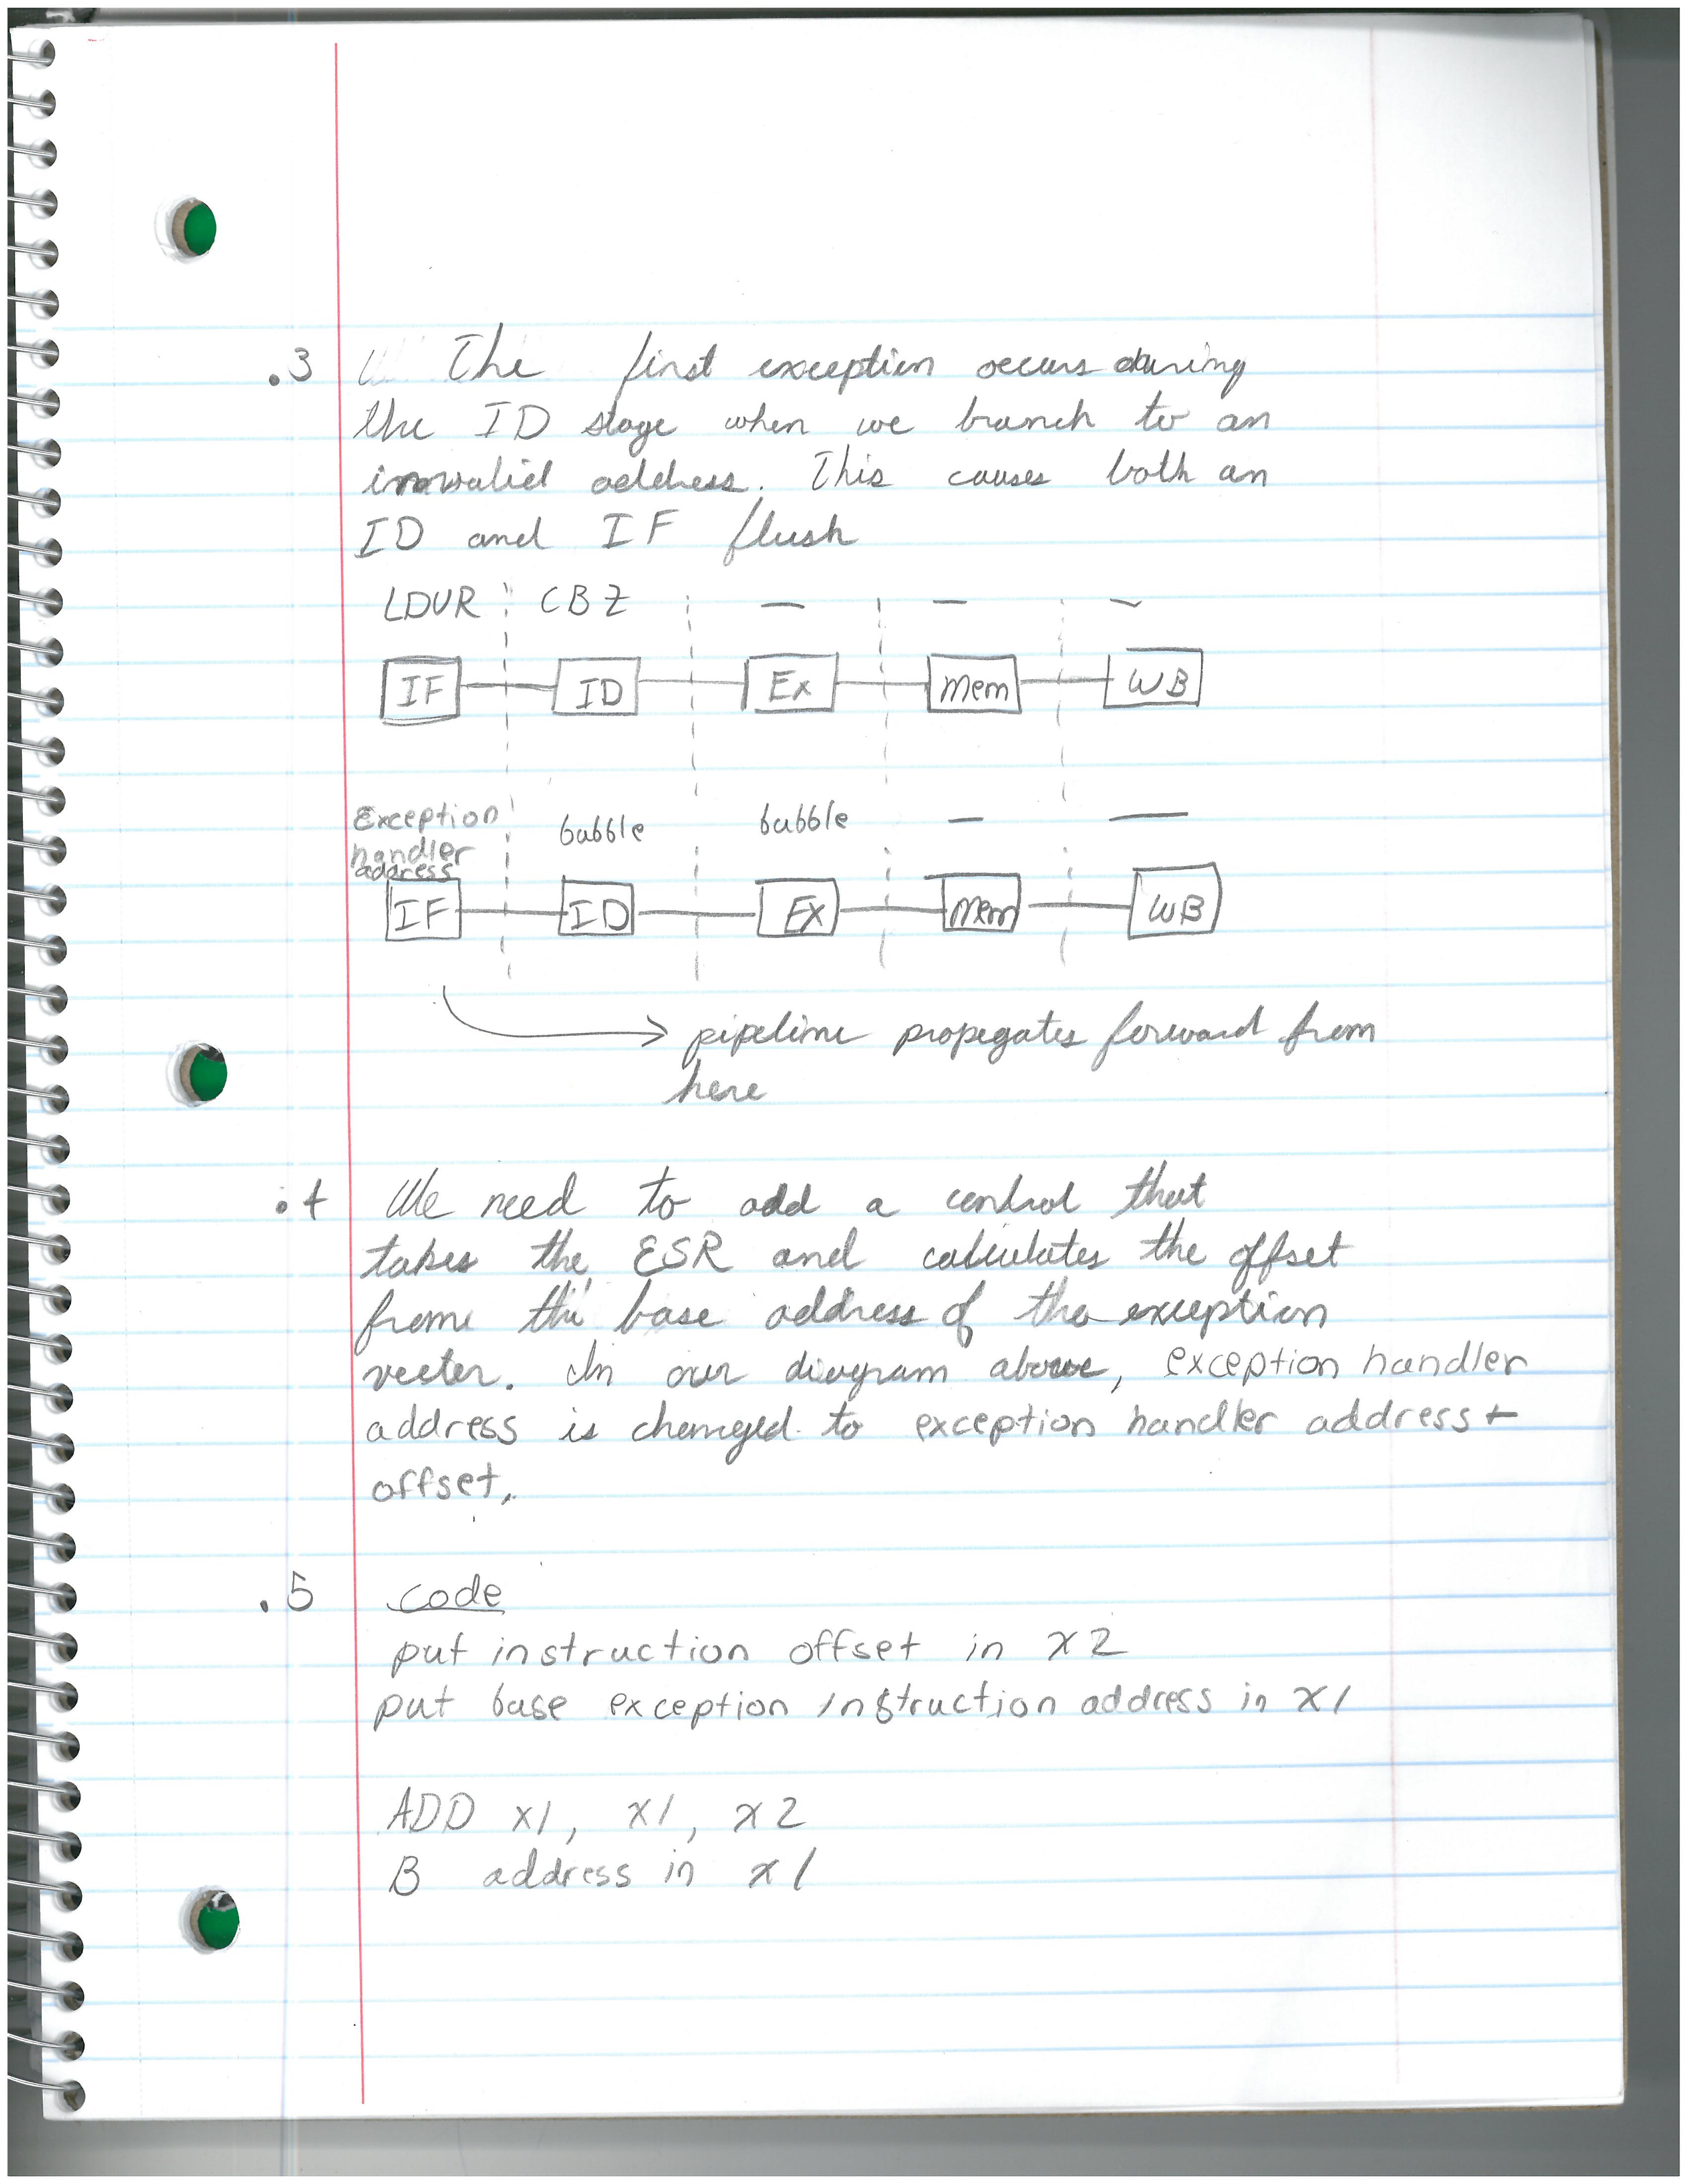 .3 The first exception occurs during
the ID stage when we branch to an
invalid address. This causes both an
ID and IF flush
LDUR CBZ — — ~
IF ID Ex Mem WB
Exception
handler
address
bubble bubble — —
IF ID EX Mem WB
pipeline propegates forward from
here
.4 We need to add a control that
takes the ESR and calculates the offset
from the base address of the exception
vector. In our diagram above, exception handler
address is changed to exception handler address +
offset.
.5 code
put instruction offset in x2
put base exception instruction address in x1
ADD x1, x1, x2
B address in x1